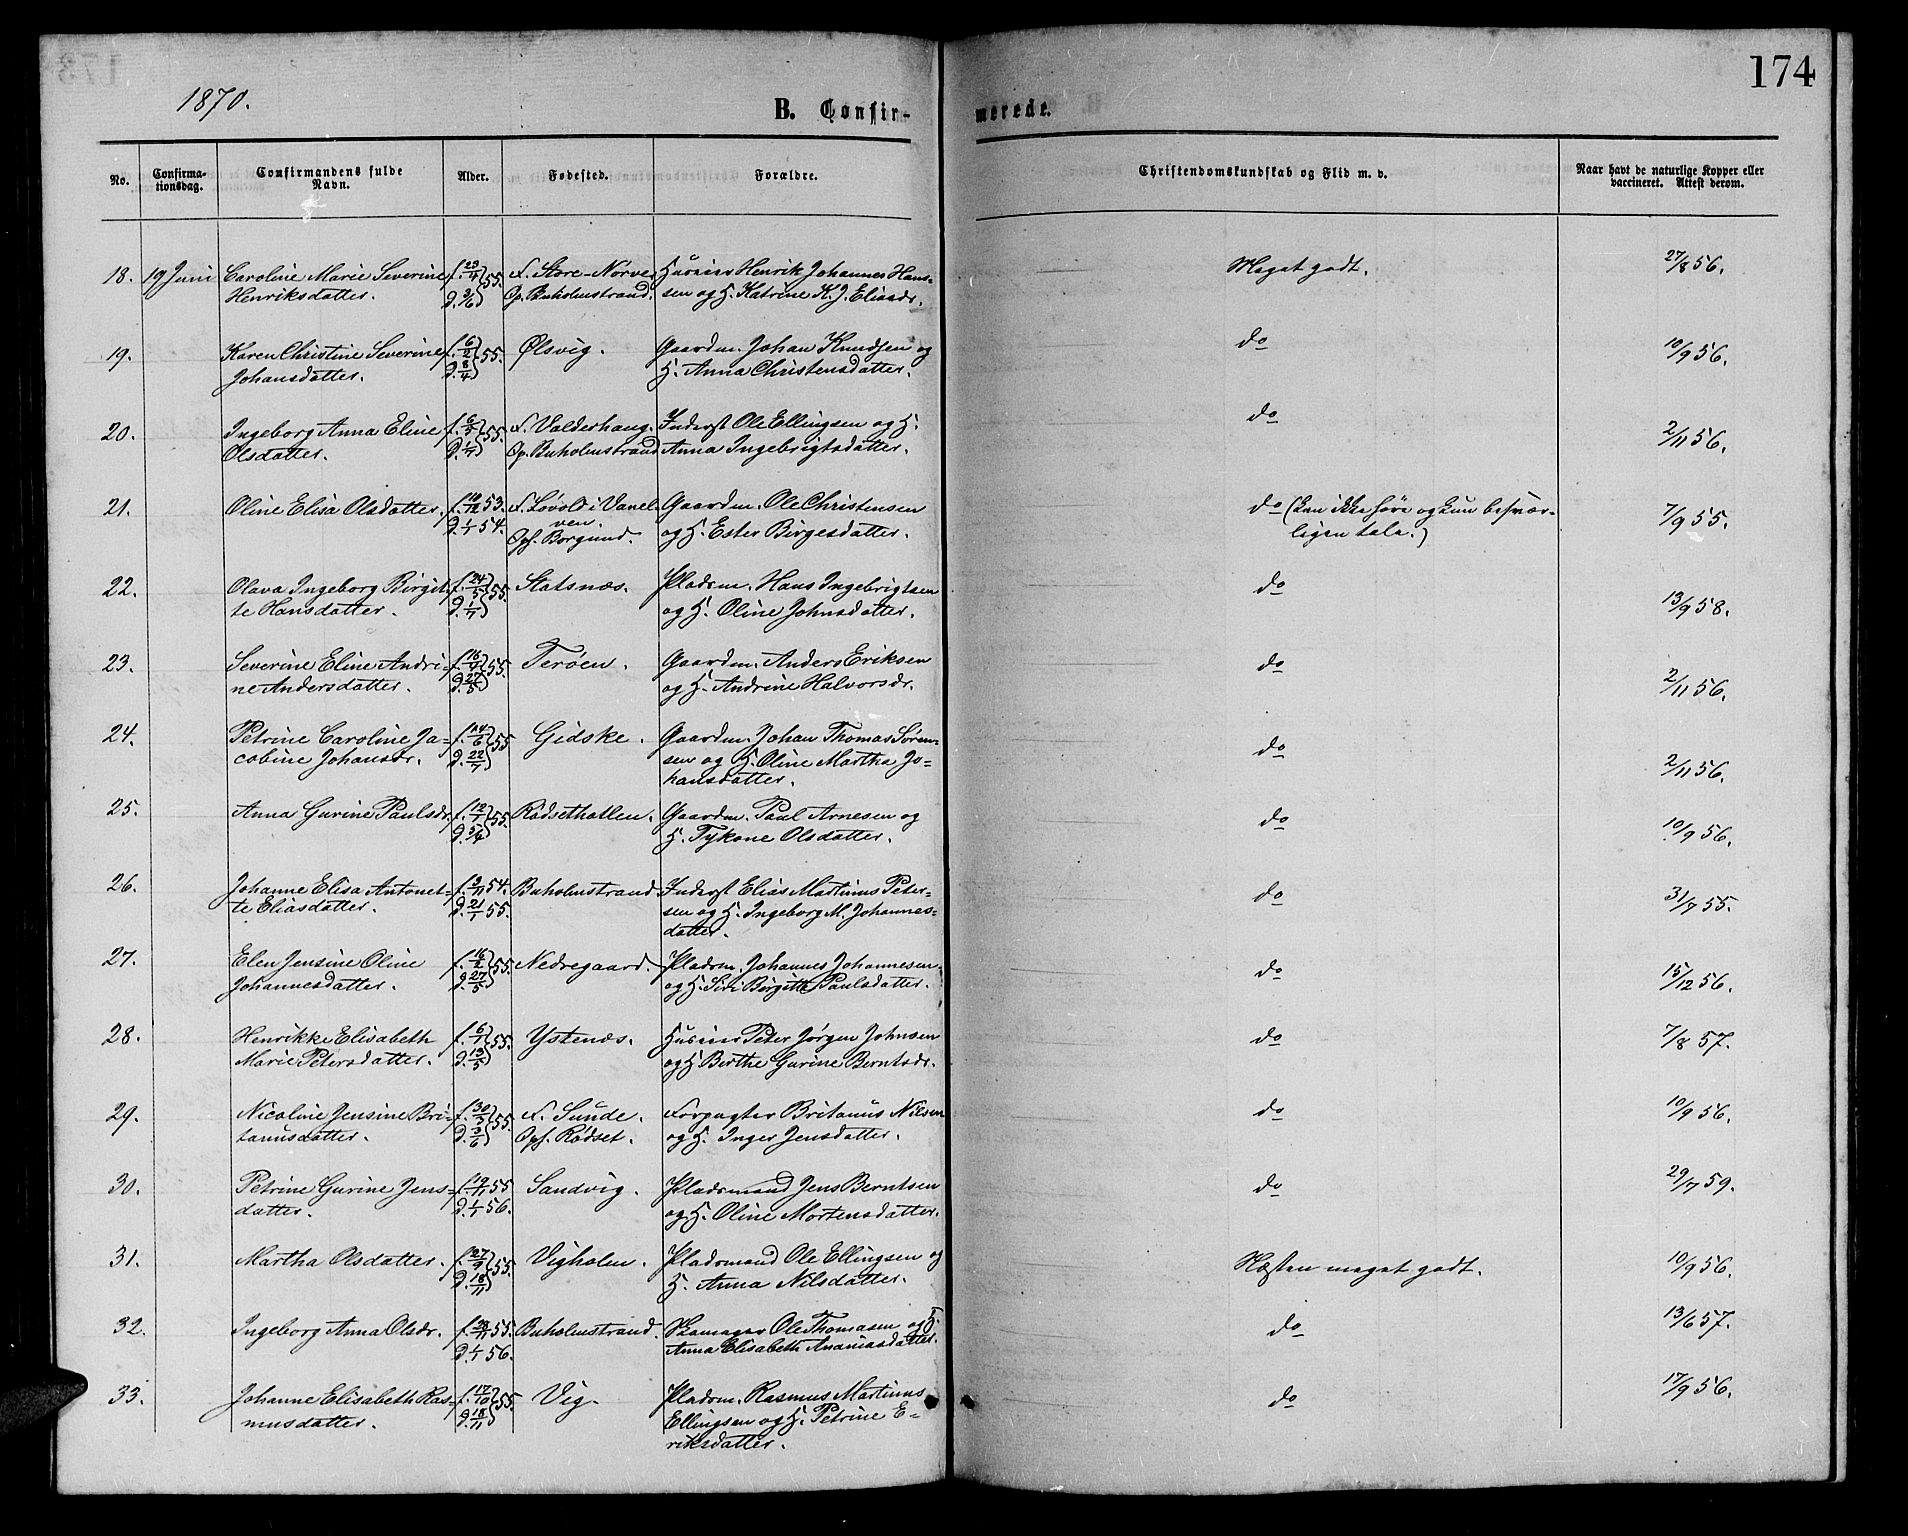 174
1870.
B. Confir-
merede.
No.
Confirma-
tionsdag.
Confirmandens fulde
Navn.
Alder.
Fødested.
Forældre.
Christendomskundskab og Flid m. v.
Naar havt de naturlige Kopper eller
vaccineret. Attest derom.
18. 19 Juni Caroline Marie Severine f. 23/4 55. F. Store-Nørve Huseier Henrik Johannes Hans- Meget godt. 27/8 56.
Henriksdatter. d. 3/6 Op. Buholmstrand. sen og H. Katrine K. J. Eliasdr.
19. Karen Christine Severine f. 6/2 55. Ølsvig. Gaardm. Johan Knudsen og do 10/9 56.
Johansdatter. d. 8/4 H. Anna Christensdatter.
20. Ingeborg Anna Eline f. 6/5 55. F. Valderhaug. Inderst Ole Ellingsen og H. do 2/11 56.
Olsdatter. d. 1/7 Op. Buholmstrand Anna Ingebrigtsdatter.
21. Oline Elisa Olsdatter. f. 10/12 53. F. Løvold i Vanel- Gaardm. Ole Christensen do (kan ikke høre og kun besvær- 7/9 55.
d. 1/1 54. ven. og H. Ester Birgesdatter. ligen tale.)
Opf. Borgund.
22. Olava Ingeborg Birgit- f. 24/5 55. Statsnæs. Pladsm. Hans Ingebrigtsen do 13/9 58.
te Hansdatter. d. 1/7 og H. Oline Johnsdatter.
23. Severine Eline Andri- f. 16/4 55. Terøen. Gaardm. Anders Eriksen do 2/11 56.
ne Andersdatter. d. 27/5 og H. Andrine Halvorsdr.
24. Petrine Caroline Ja- f. 14/6 55 Gidske. Gaardm. Johan Thomas Søren- do 2/11 56.
cobine Johansdr. d. 22/7 sen og H. Oline Martha Jo-
hansdatter.
25. Anna Gurine Paulsdr. f. 12/1 55. Rødsethatlen. Gaardm. Paul Arnesen og do 10/9 56.
d. 5/4 H. Tykone Olsdatter.
26. Johanne Elisa Antonet- f. 3/11 54. Buholmstrand. Inderst Elias Martinus Peter- do 31/7 55.
te Eliasdatter. d. 21/1 55. sen og H. Ingeborg M. Johannes-
datter.
27. Elen Jensine Oline f. 16/2 55. Nedregaard. Pladsm. Johannes Johannesen do 15/12 56.
Johannesdatter. d. 27/5 og H. Siri Birgitte Paulsdatter.
28. Henrikke Elisabeth f. 6/1 55. Ystenæs. Huseier Peter Jørgen Johnsen do 7/8 57.
Marie Petersdatter. d. 13/5 og H. Berthe Gurine Berntsdr.
29. Nicoline Jensine Bri- f. 30/3 55. F. Sunde. Forpagter Britanus Nilsen do 10/9 56.
tanusdatter. d. 3/6 Opf. Rødset. og H. Inger Jensdatter.
30. Petrine Gurine Jens- f. 19/11 55 Sandvig. Pladsmand Jens Berntsen do 29/7 59.
datter. d. 1/1 56. og H. Oline Mortensdatter.
31. Martha Olsdatter. f. 27/9 55. Vigholen. Pladsmand Ole Ellingsen og Næsten meget godt. 10/9 56.
d. 18/11 H. Anna Nilsdatter.
32. Ingeborg Anna Olsdr. f. 23/11 55. Buholmstrand. Skomager Ole Thomasen og H. do 13/6 57.
d. 1/1 56. Anna Elisabeth Ananiasdatter.
33. Johanne Elisabeth Ras- f. 17/10 55. Vig. Pladsm. Rasmus Martinus do 17/9 56.
musdatter. d. 18/11 Ellingsen og H. Petrine E-
riksdatter.